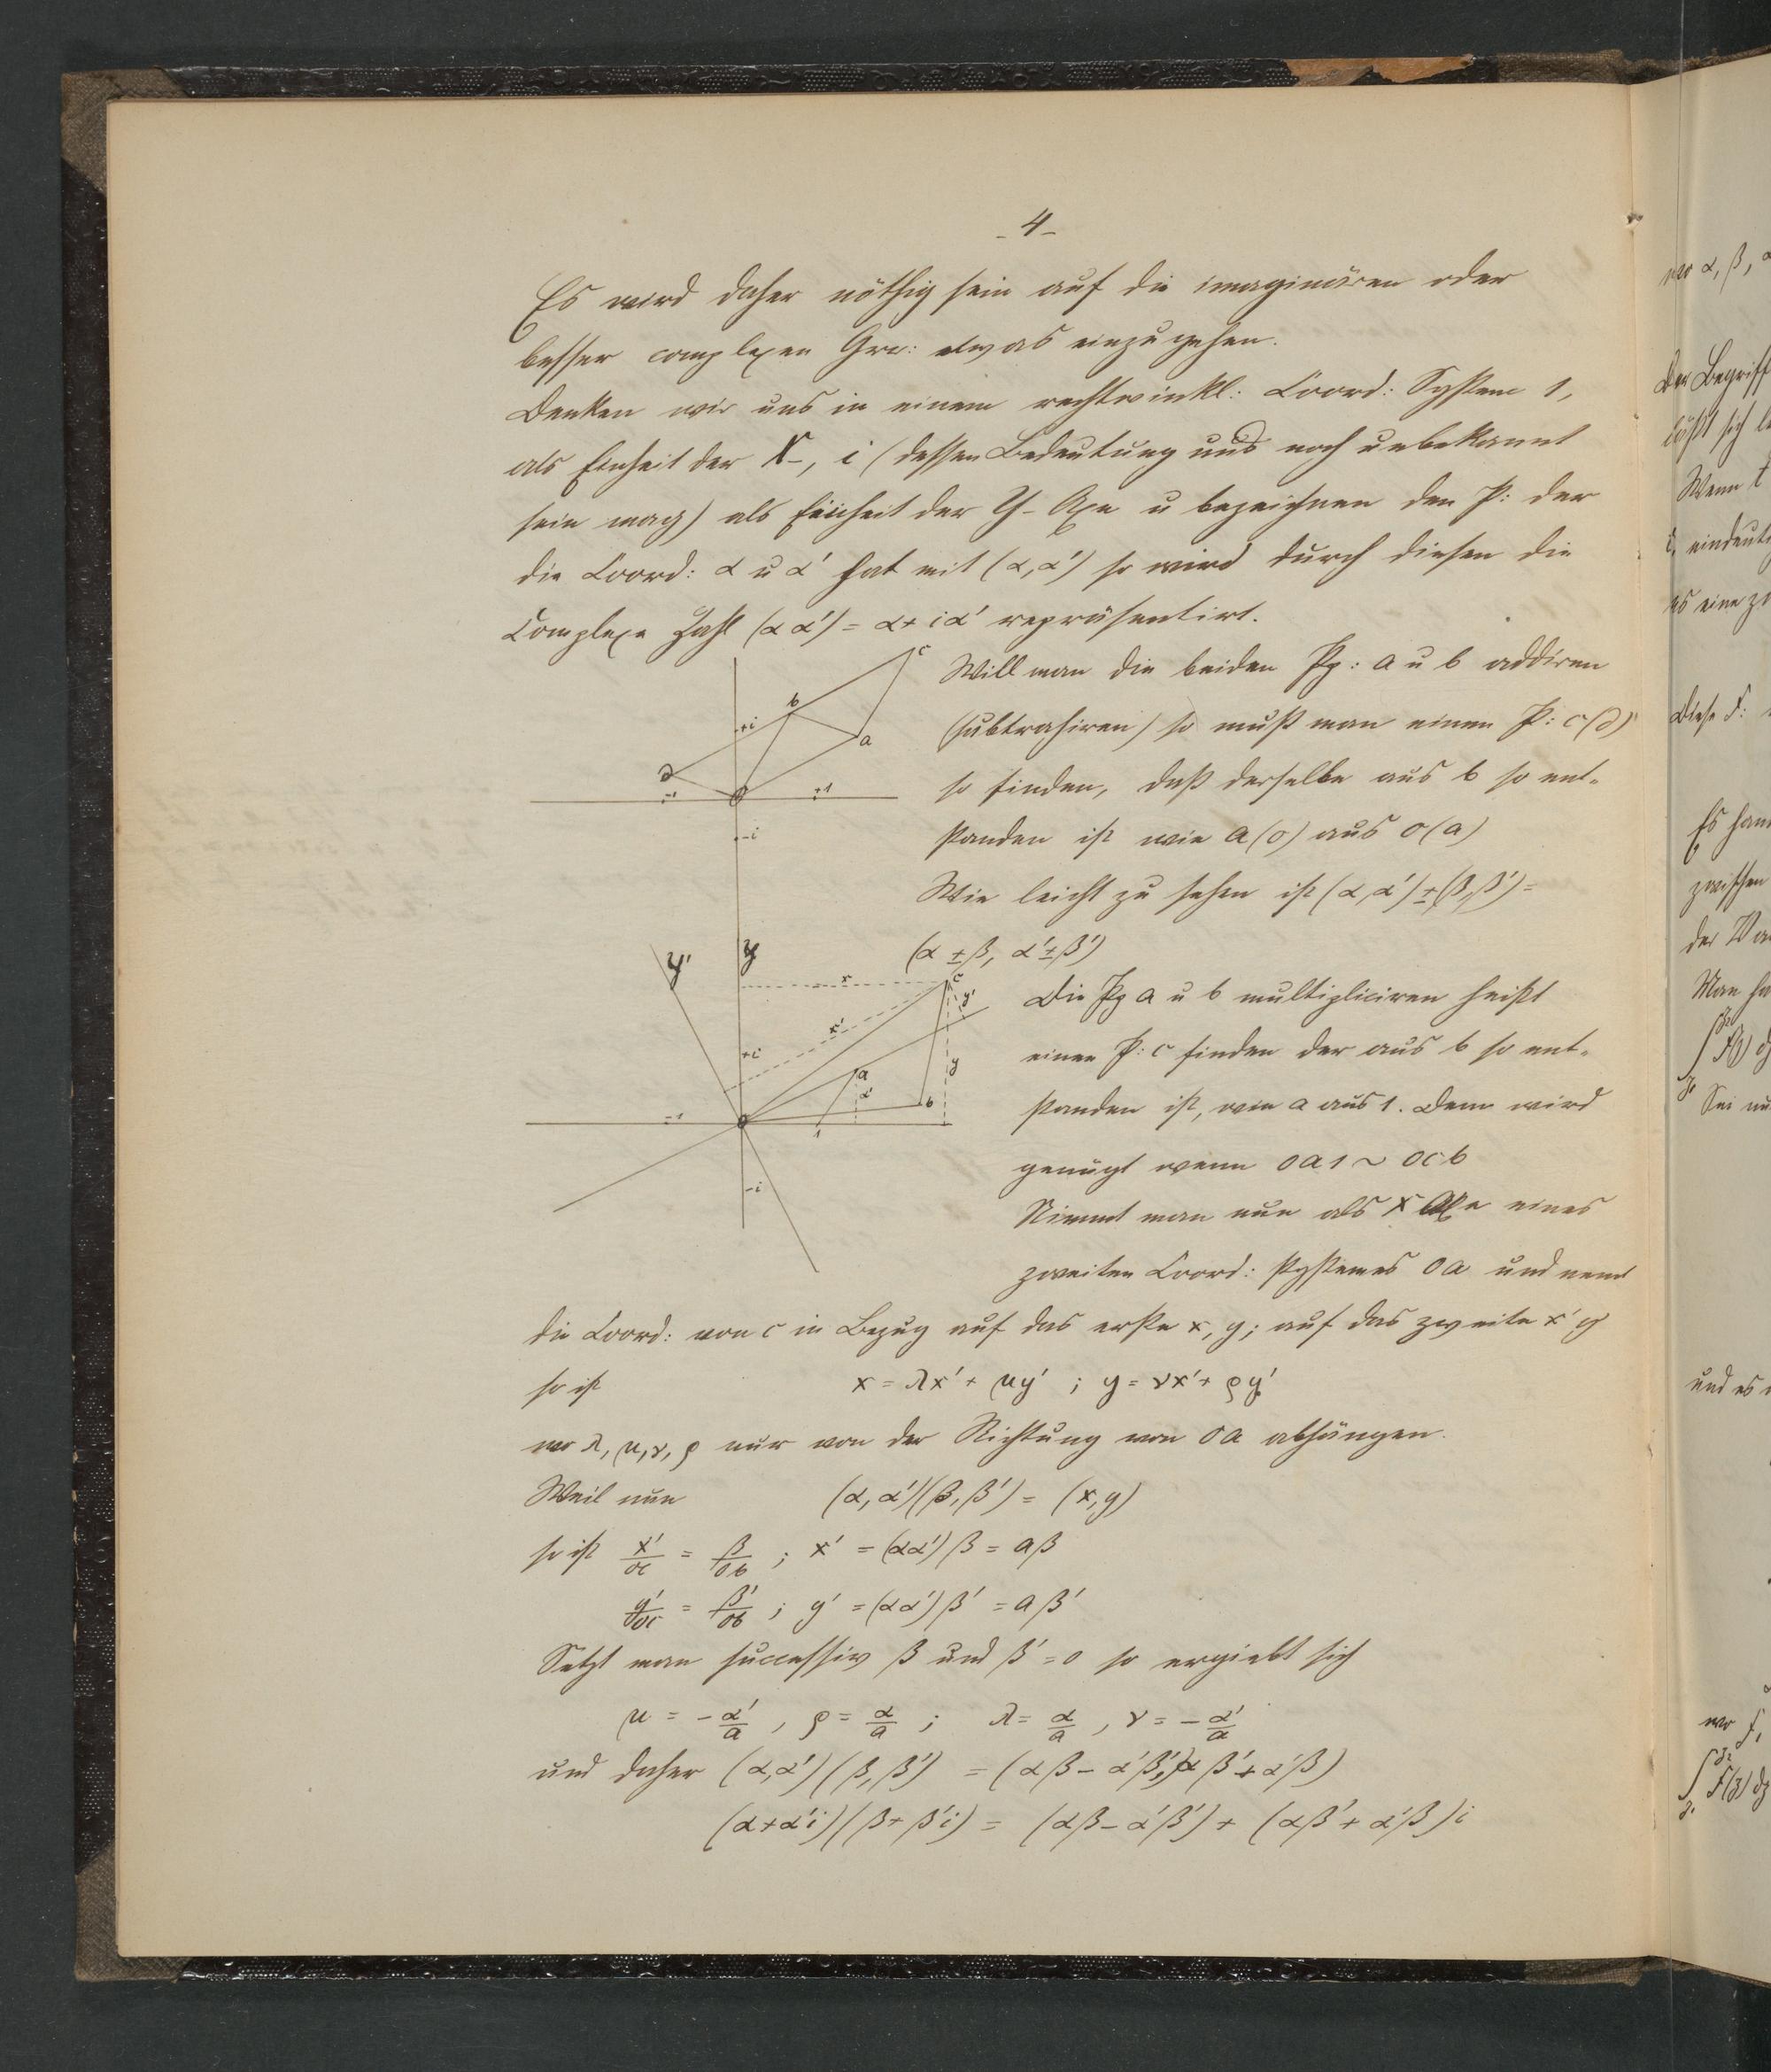 - 4 -
Es wird daher nöthig sein auf die imaginären oder
besser complexen Grö: etwas einzugehen.
Denken wir uns in einem rechtwinkl: Coord: System 1,
als Einheit der X-, i (dessen Bedeutung uns noch unbekannt
sein mag) als Einheit der Y-Axe u bezeichnen den P: der
die Coord: α u α' hat mit (α,α') so wird durch diesen die
Complexe Zahl (α α') = α + iα' repräsentirt.
Will man die beiden Pp: a u b addiren
(subtrahiren) so muß man einen P: c (d)
so finden, daß derselbe aus b so ent-
standen ist wie a (o) aus o (a)
Wie leicht zu sehen ist (α,α') ± (β,β') =
(α ± β, α' ± β')
c
b
+i
a
d
-1
o
+1
-i
Die Pp a u b multipliciren heißt
einen P: c finden der aus b so ent-
standen ist, wie a aus 1. Dem wird
genügt wenn oa1 ~ ocb
Nimmt man nun als X Axe eines
zweiten Coord: Systemes oa und nennt
y'
y
x
c
y'
x'
+i
a
y
α'
b
-1
o
1
-i
die Coord: von c in Bezug auf das erste x, y; auf das zweite x' y'
so ist x = λx' + μy' ; y = νx' + ρy'
wo λ, μ, ν, ρ nur von der Richtung von oa abhängen.
Weil nun (α, α')(β, β') = (x, y)
so ist x'/oc = β/ob ; x' = (αα') β = aβ
y'/oc = β'/ob ; y' = (αα') β' = aβ'
Setzt man successiv β und β' = 0 so ergiebt sich
μ = - α'/a , ρ = α/a ; λ = α/a , ν = - α'/a
und daher (α,α') (β,β') = (αβ - α'β', αβ' + α'β)
(α + α'i)(β + β'i) = (αβ - α'β') + (αβ' + α'β) i